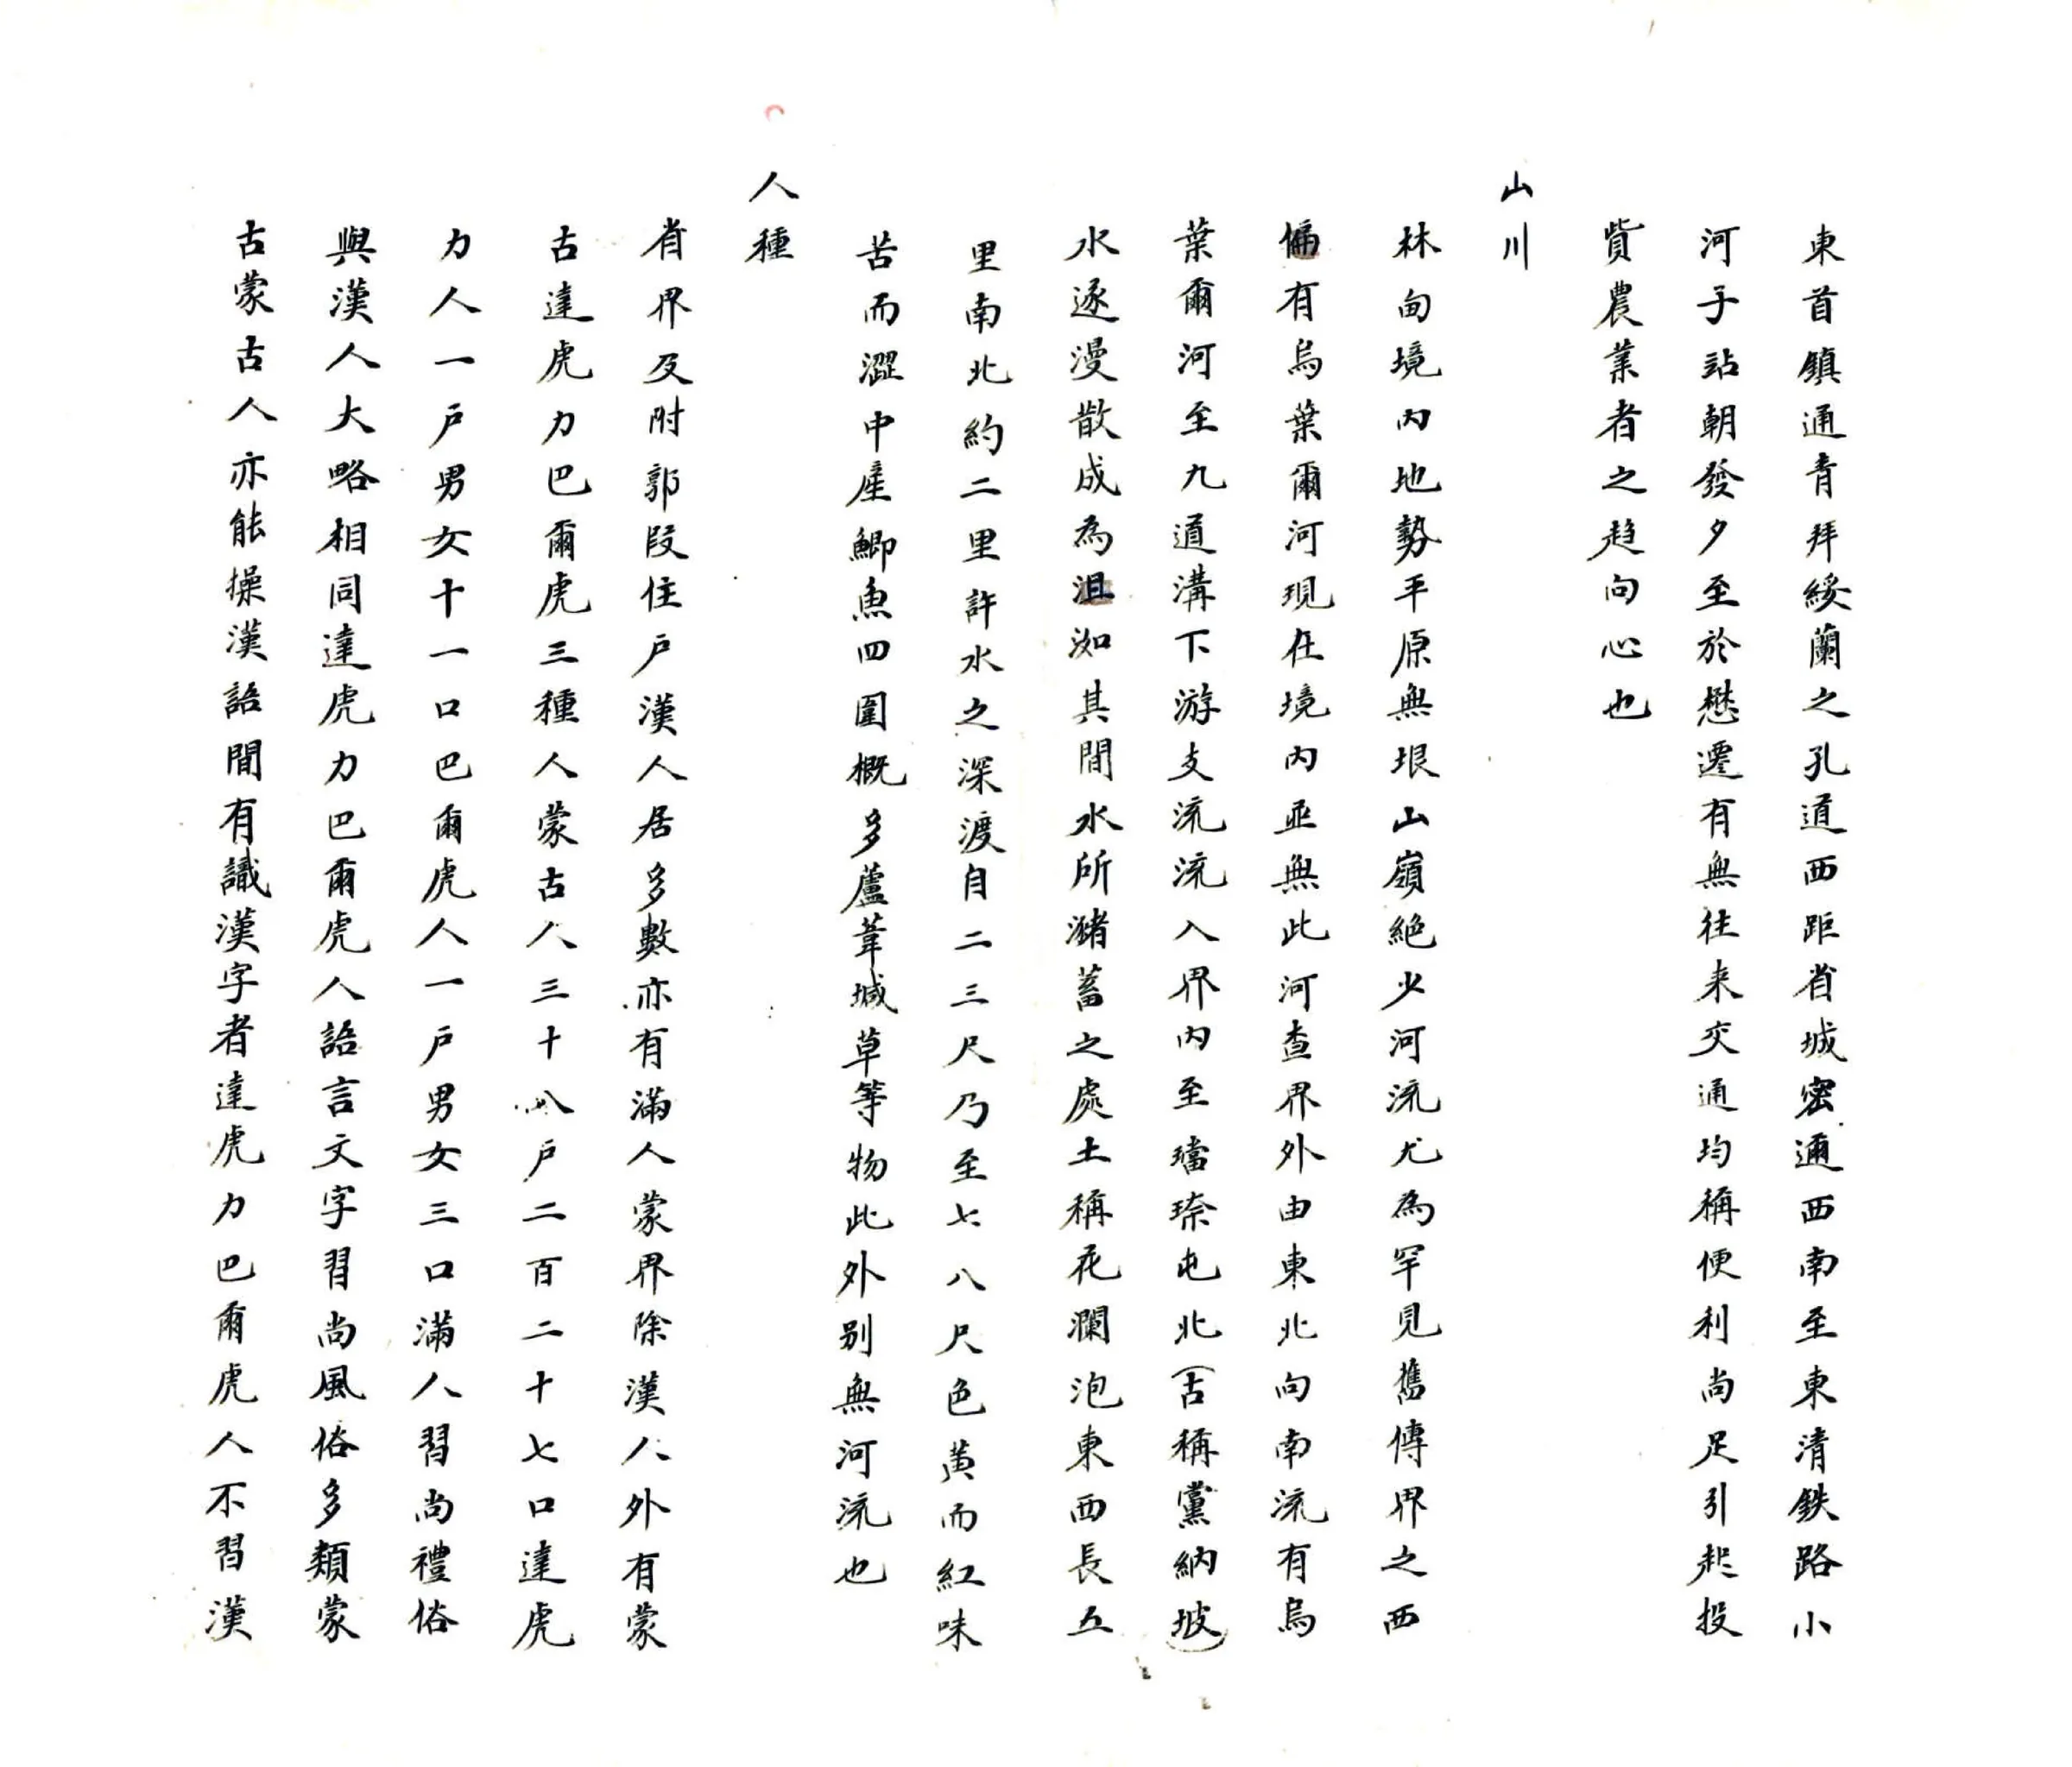 東首鎮通青拜綏蘭之孔道西距省城密邇西南至東清鉄路小
河子站朝發夕至於懋遷有無往来交通均稱便利尚足引起投
貲農業者之趋向心也
山川
林甸境內地勢平原無垠山嶺絶少河流尤為罕見舊傳界之西
偏有烏葉爾河現在境內並無此河查界外由東北向南流有烏
葉爾河至九道溝下游支流流入界內至璫琜屯北（古稱黨納坡）
水逐漫散成為沮洳其間水所瀦蓄之處土稱花瀾泡東西長五
里南北約二里許水之深渡自二三尺乃至七八尺色黃而紅味
苦而澀中產鯽魚四圍概多蘆葦堿草等物此外别無河流也
人種
省界及附郭段住戶漢人居多數亦有滿人蒙界除漢人外有蒙
古達虎力巴爾虎三種人蒙古人三十八戶二百二十七口達虎
力人一戶男女十一口巴爾虎人一戶男女三口滿人習尚禮俗
與漢人大略相同達虎力巴爾虎人語言文字習尚風俗多類蒙
古蒙古人亦能操漢語間有識漢字者達虎力巴爾虎人不習漢